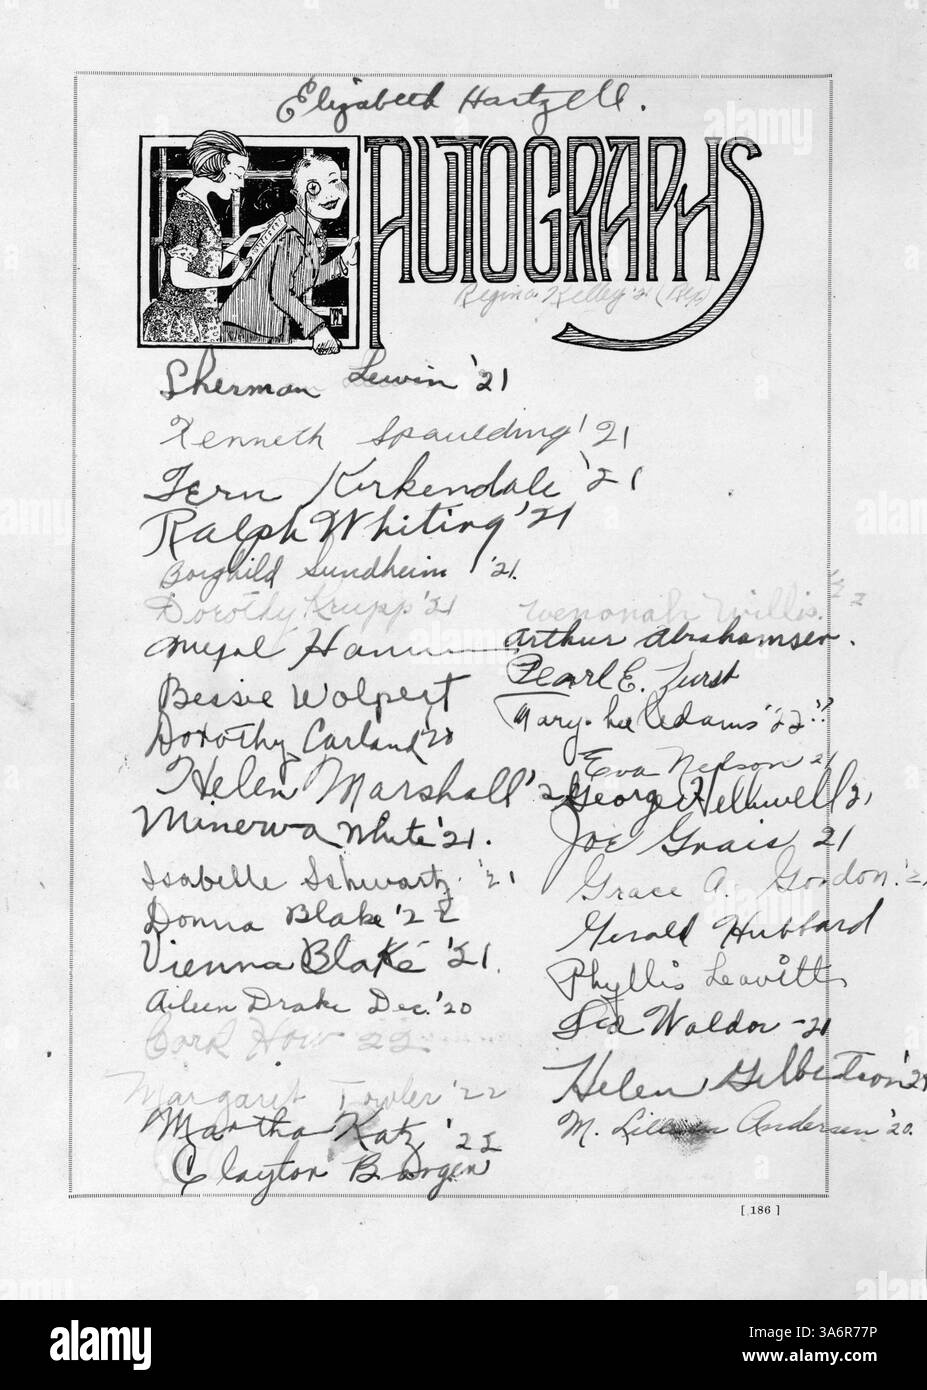 Elizabeth Hartzell.
AUTOGRAPHS
Regina Kelley '21
Sherman Lewin '21
Kenneth Spaulding '21
Fern Kirkendale '21
Ralph Whiting '21
Borghild Sundheim '21.
Dorothy Krupp '21
Bessie Wolpert
Dorothy Carland '20
Helen Marshall '2
Minerva White '21.
Isabelle Schwartz '21
Donna Blake '22
Vienna Blake '21.
Aileen Drake Dec. '20
How 22
Margaret Towler '22
Martha Katz '22
Clayton Borgen
Wenonah Willis. '22
Arthur Abrahamsen.
Pearl E. Furst
Mary Lee Adams '22"
Eva Nelson 21
George Helliwell 21
Joe Grais 21
Grace A. Gordon. '2
Gerald Hubbard
Phyllis Leavitt
Sid Waldor -21
Helen Gilbertson '2
M. Lillian Andersen '20.
[ 186 ]
alamy
Image ID: 3A6R77P
www.alamy.com